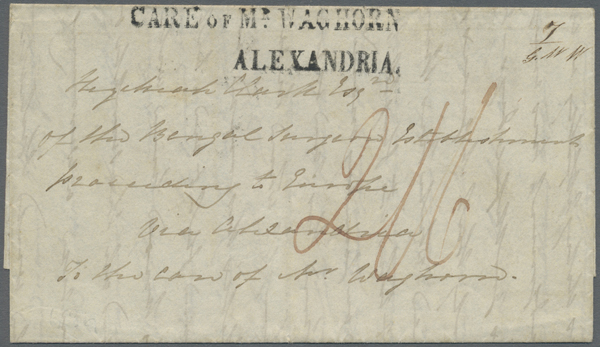 CARE OF Mr. WAGHORN
ALEXANDRIA.
7
G. W W
Hezekiah Clark Esqre
of the Bengal Surgeon Establishment
proceeding to Europe
Via Alexandria
To the care of Mr. Waghorn.
2/6